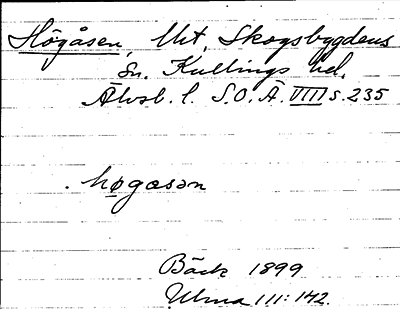 Högåsen, Ut, Skogsbygdens
Sn. Kullings hd.
Älvsb. l. S.O.Ä. VIII s. 235
högåsən
Bäck 1899
Ulma 111:142.